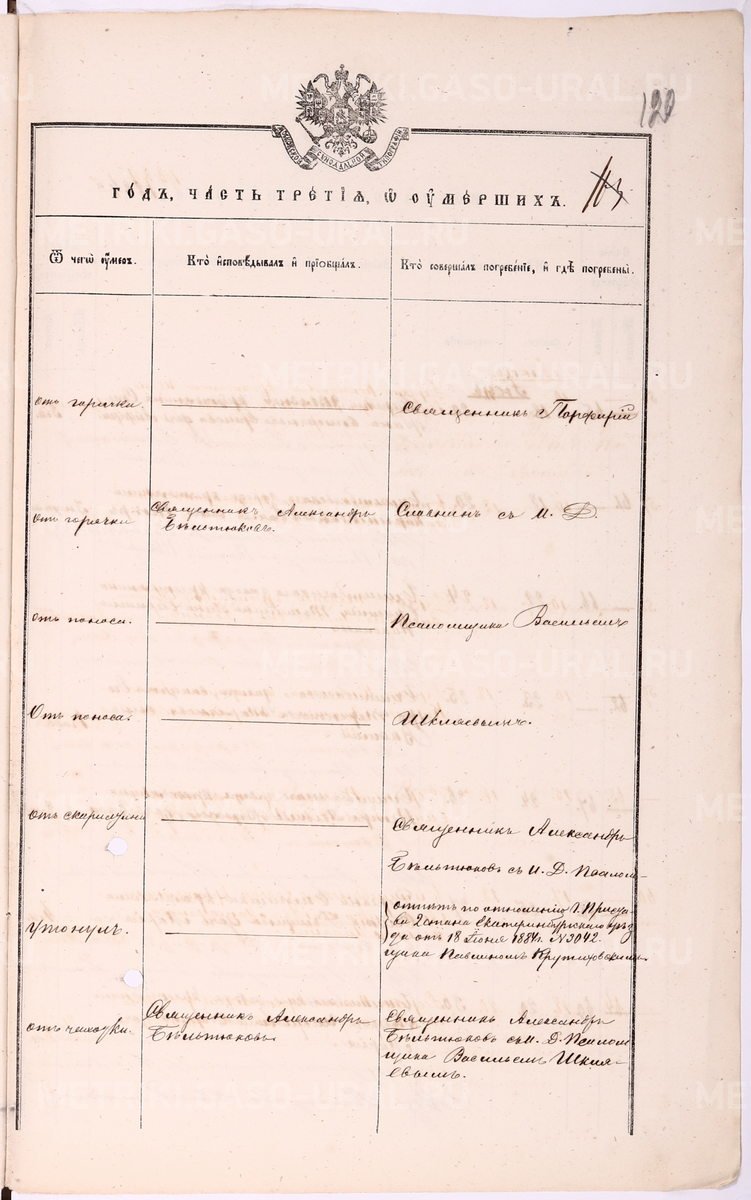 120
Год҃ъ, часть третїѧ, ѡ҆ оу҆мершихъ.
113
Ѿ чегѡ оу҆меръ.
Кто и҆сповѣдывалъ и҆ прїобщалъ.
Кто совершалъ погребенїе, и҆ гдѣ погребены.
отъ горячки.
Священникъ Порфирій
отъ горячки
Священникъ Александръ
Бѣльтюковъ.
Славнинъ съ И. Д.
отъ поноса.
Псаломщика Васильемъ
Отъ поноса.
Шкляевымъ.
отъ скарлатины
Священникъ Александръ
Бѣльтюковъ съ И. Д. Псалом-
утонулъ.
отпѣтъ по отношенію Г. Приста-
ва 2 стана Екатеринбургскаго уѣз-
да отъ 18 Іюня 1884 г. № 3042.
щика Павлиномъ Крутиховскимъ.
отъ чахотки.
Священникъ Александръ
Бѣльтюковъ
Священникъ Александръ
Бѣльтюковъ съ И. Д. Псалом
щика Васильемъ Шкля-
евымъ.
METRIKI.GASO-URAL.RU